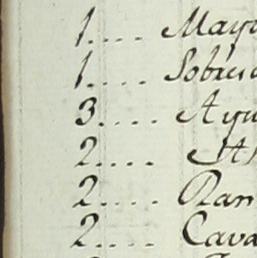 1.... Mayo
1.... Sobres
3.... Ayu
2....
2.... Ran
2.... Cava